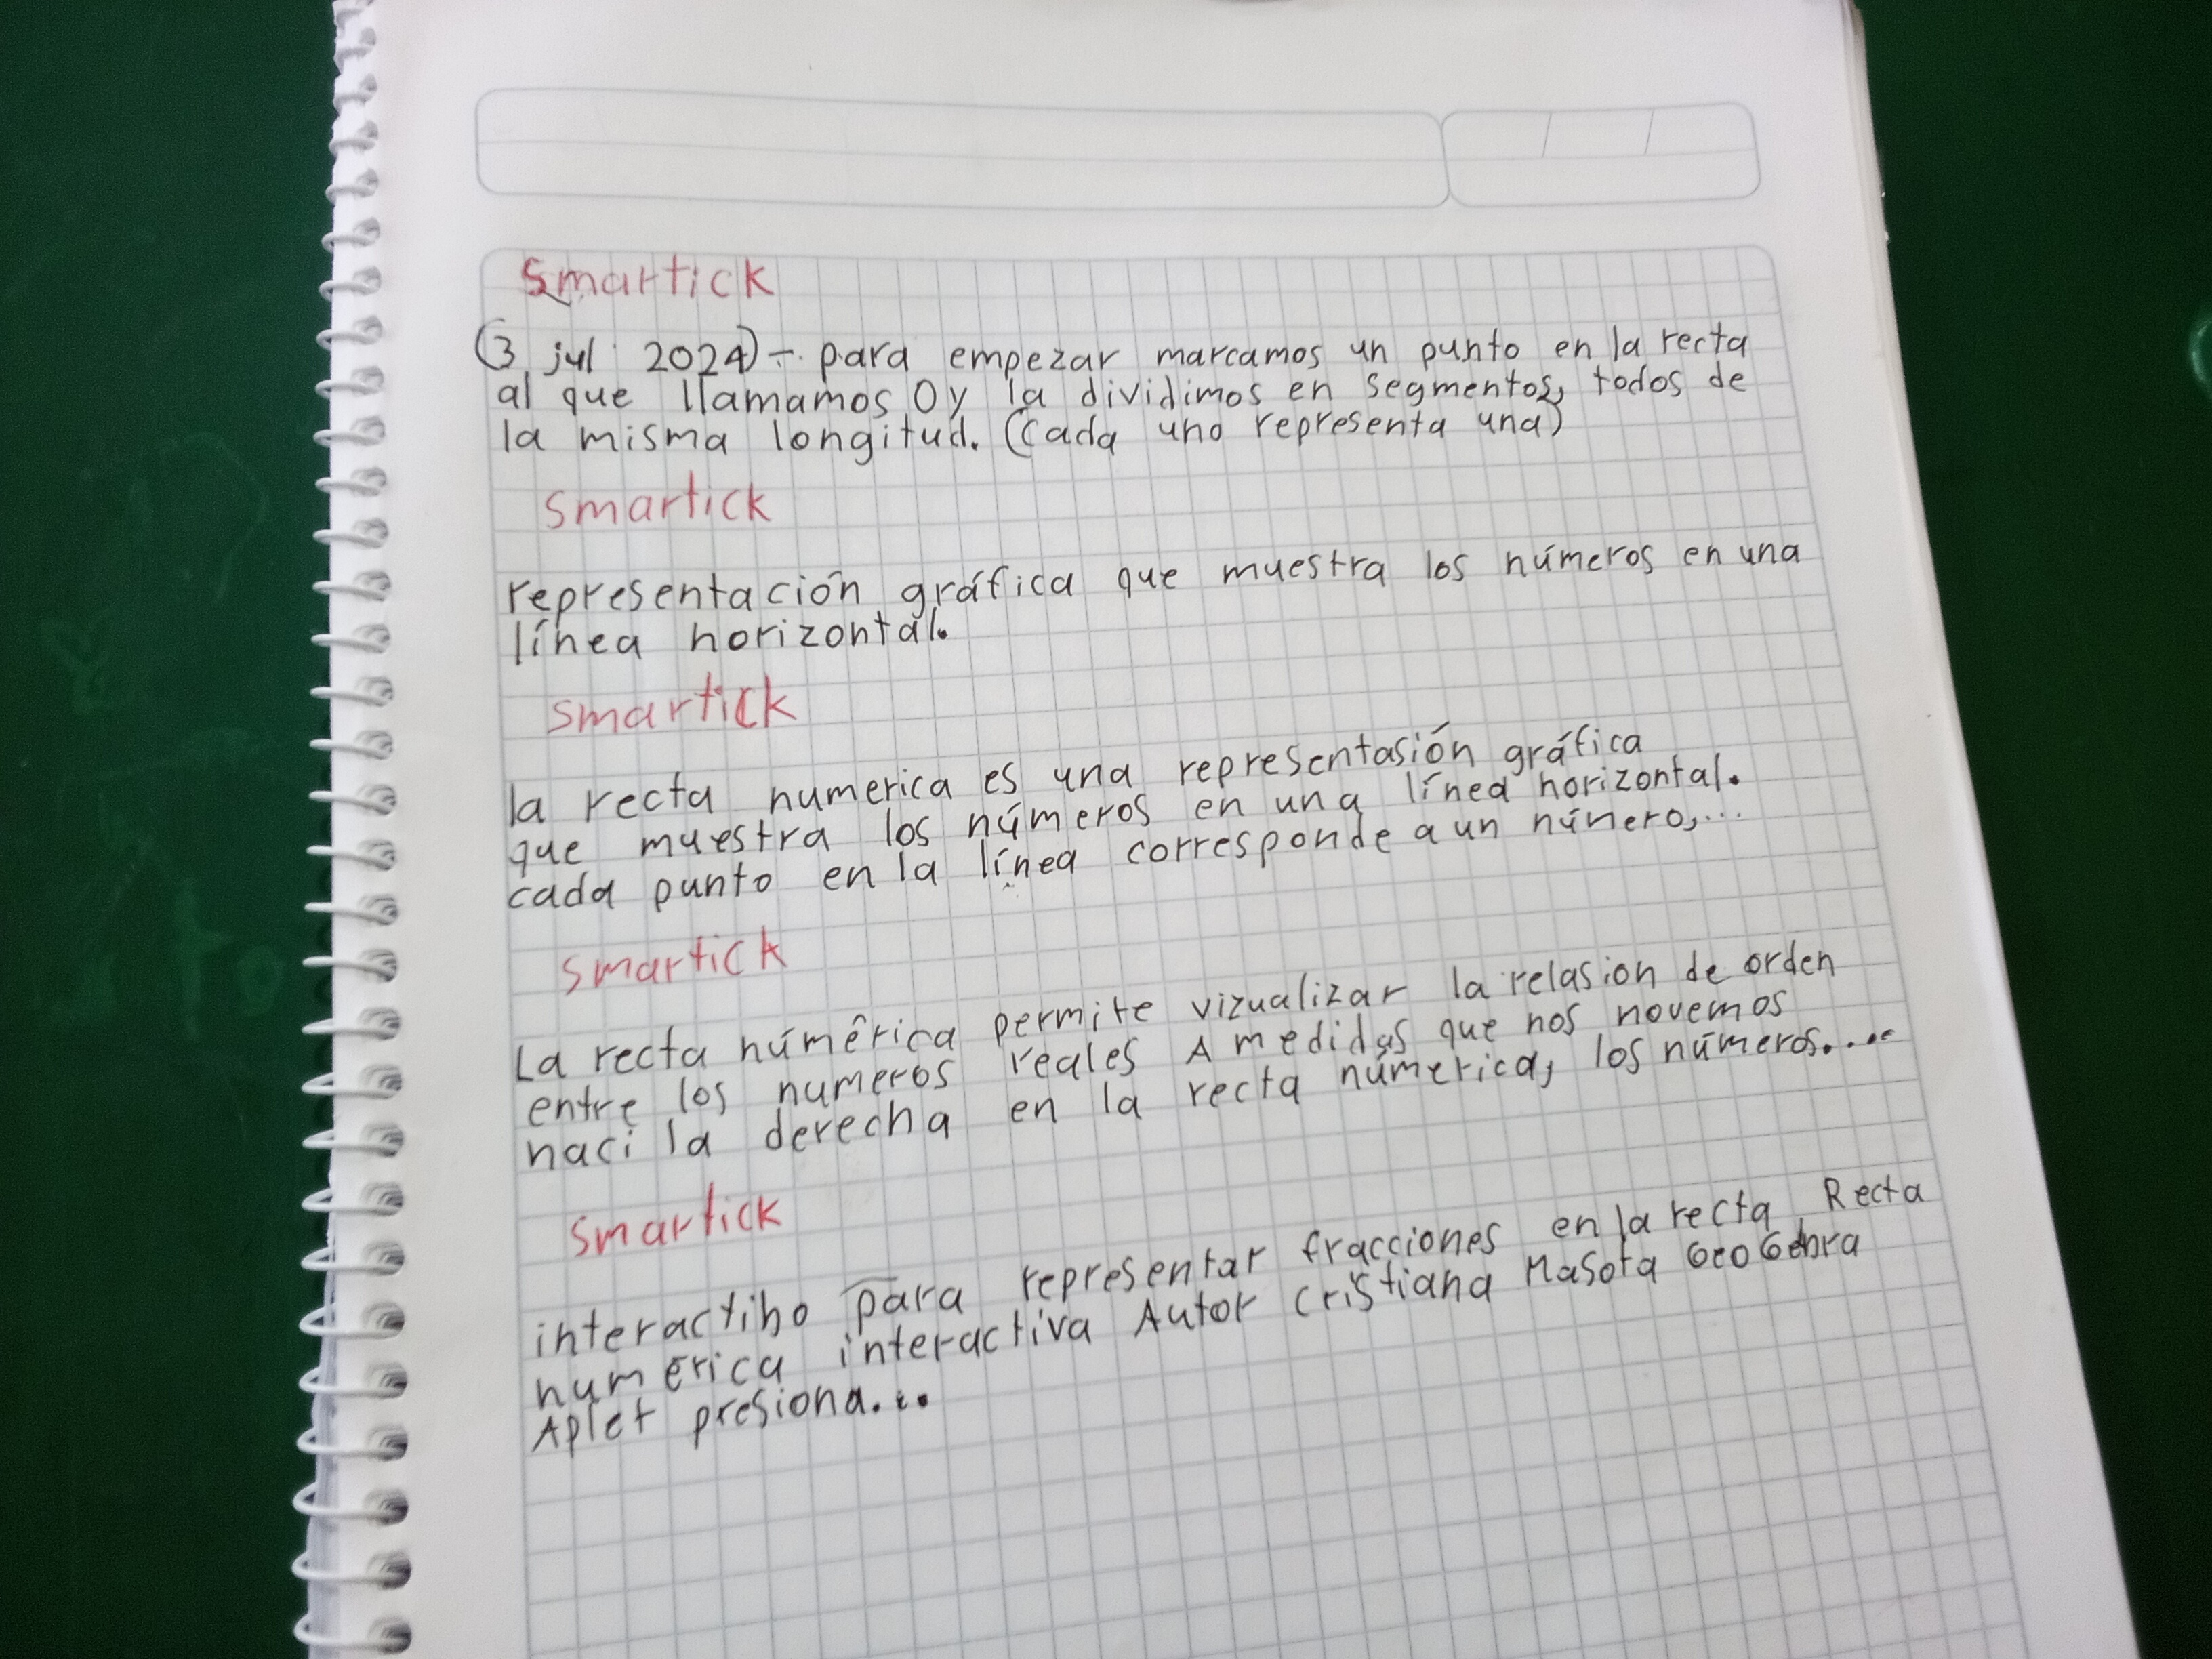 Smartick
(3 jul 2024) - para empezar marcamos un punto en la recta
al que llamamos 0 y la dividimos en segmentos, todos de
la misma longitud. (cada uno representa una)
Smartick
representación gráfica que muestra los números en una
línea horizontal.
Smartick
la recta numerica es una representasión gráfica
que muestra los números en una línea horizontal.
cada punto en la línea corresponde a un núnero,...
Smartick
La recta númêrica permite vizualizar la relasion de orden
entre los numeros reales A medidas que nos novemos
haci la derecha en la recta númerica, los números....
Smartick
interactibo para representar fracciones en la recta Recta
numerica interactiva Autor Cristiana Masota
Aplet presiona...